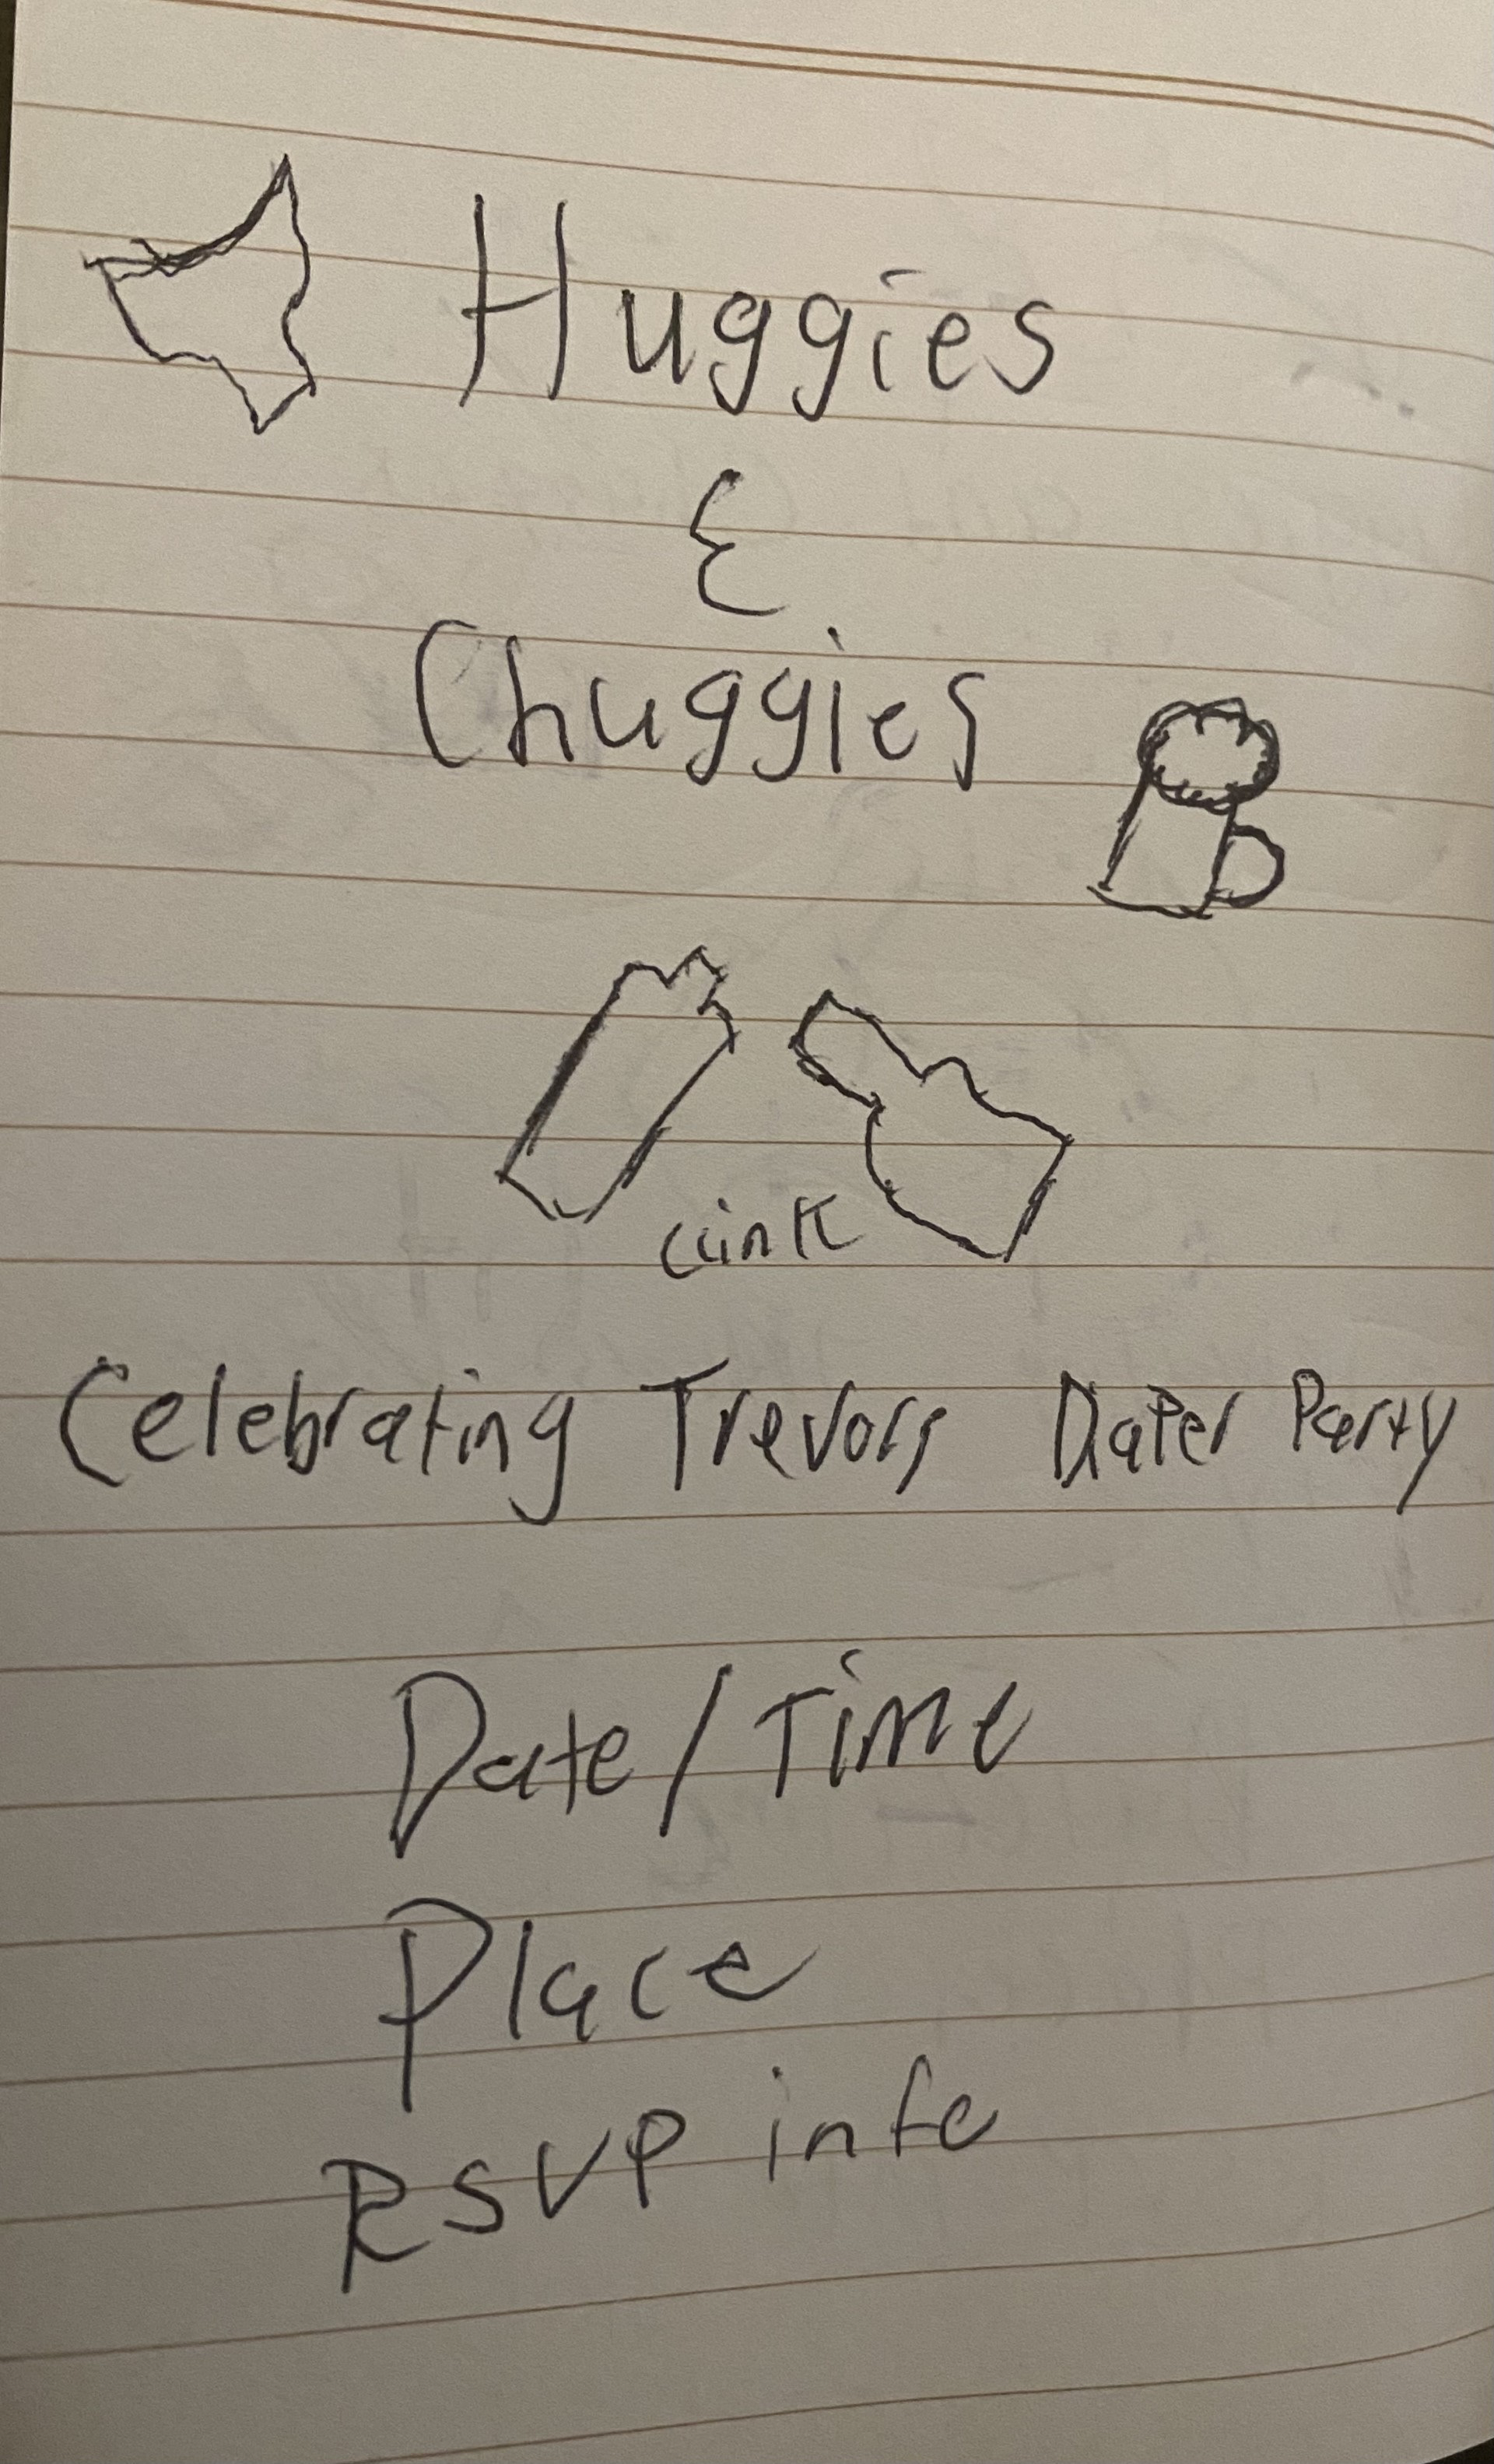 Huggies
&
Chuggies
clink
Celebrating Trevors Diaper Party
Date/Time
Place
RSVP info